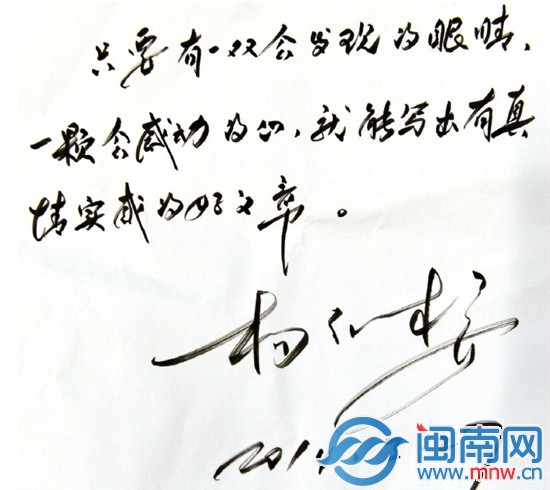 只要有一双会发现的眼睛，
一颗会感动的心，就能写出有真
情实感的好文章。
201
闽南网
www.mnw.cn